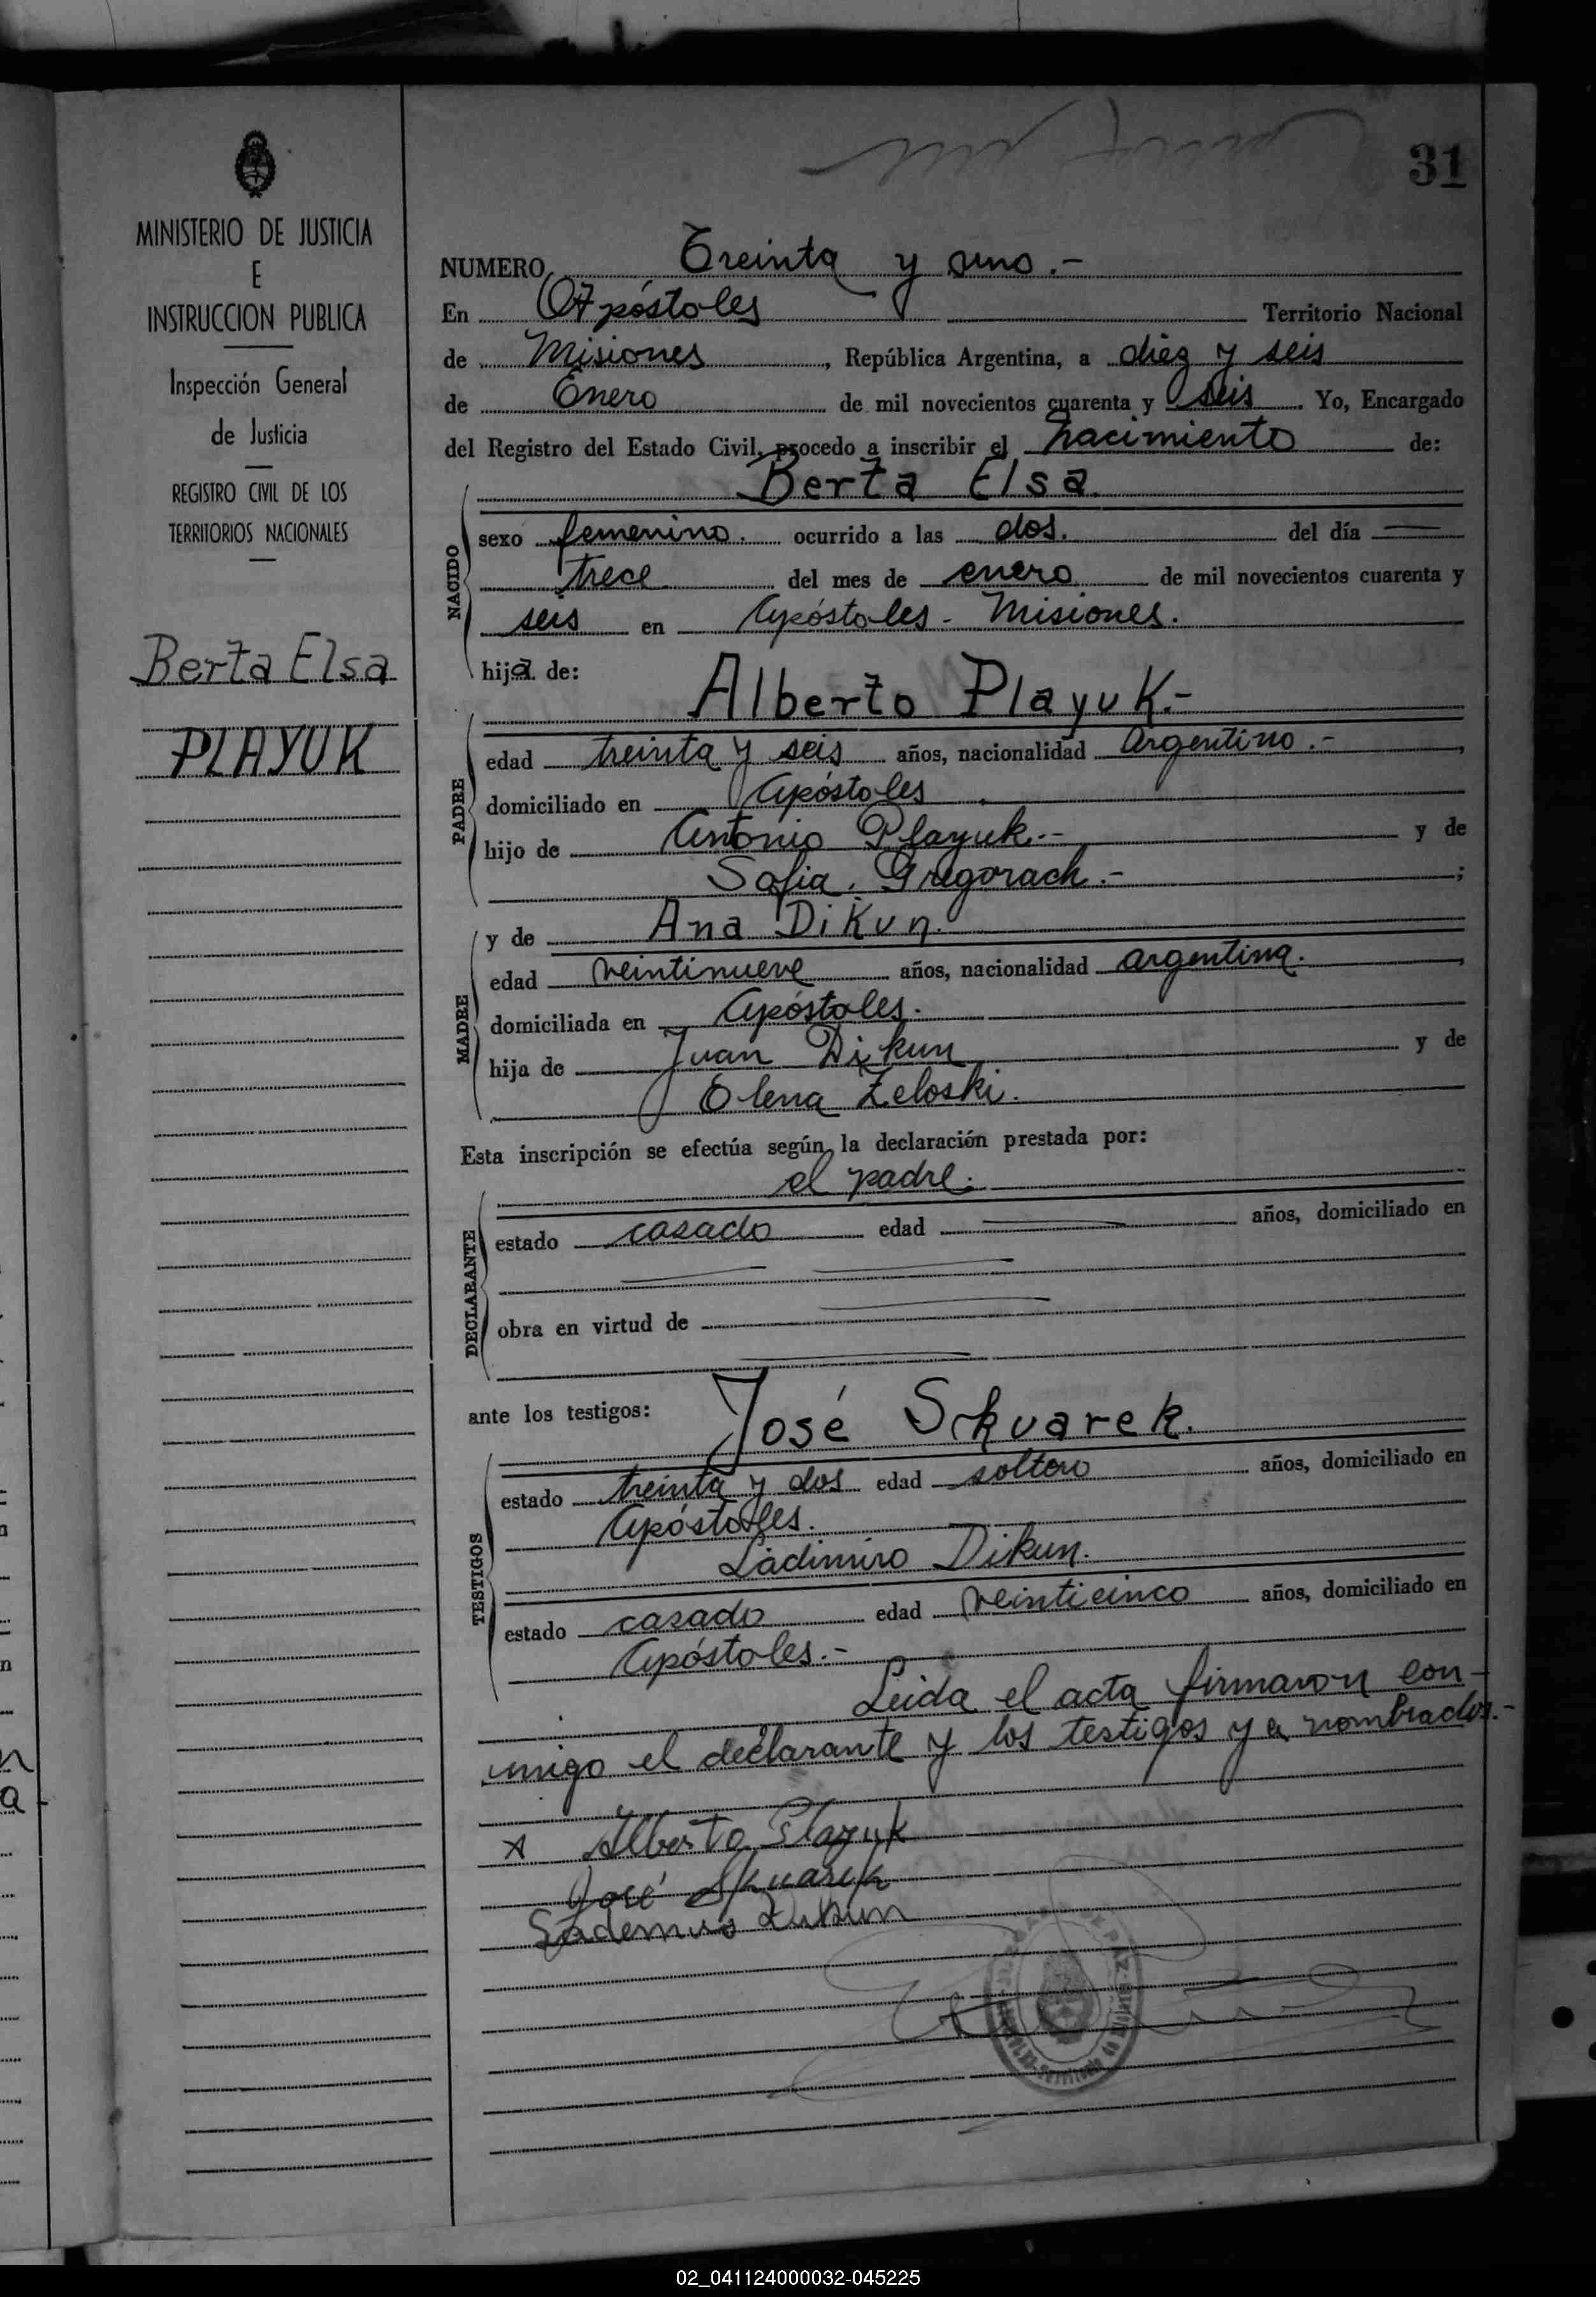 31
MINISTERIO DE JUSTICIA
E
INSTRUCCION PUBLICA
Inspección General
de Justicia
REGISTRO CIVIL DE LOS
TERRITORIOS NACIONALES
Berta Elsa
PLAYUK
NUMERO Treinta y uno.-
En Apóstoles Territorio Nacional
de Misiones, República Argentina, a diez y seis
de Enero de mil novecientos cuarenta y seis. Yo, Encargado
del Registro del Estado Civil, procedo a inscribir el nacimiento de:
Berta Elsa.
NACIDO
sexo femenino. ocurrido a las dos. del día
trece del mes de enero de mil novecientos cuarenta y
seis en Apóstoles - Misiones.
hija de:
Alberto Playuk.-
PADRE
edad treinta y seis años, nacionalidad Argentino.-,
domiciliado en Apóstoles.
hijo de Antonio Playuk.- y de
Sofia Gregorach.-;
MADRE
y de Ana Dikun.
edad veintinueve años, nacionalidad argentina.,
domiciliada en Apóstoles.
hija de Juan Dikun y de
Olena Zeloski.
Esta inscripción se efectúa según la declaración prestada por:
el padre.
DECLARANTE
estado casado edad años, domiciliado en
obra en virtud de
ante los testigos: José Skuarek.
TESTIGOS
estado treinta y dos edad soltero años, domiciliado en
Apóstoles.
Ladimiro Dikun.
estado casado edad veinticinco años, domiciliado en
Apóstoles.-
Leida el acta firmaron con-
migo el declarante y los testigos ya nombrados.-
x Alberto Playuk
José Skuarek
Dikun
02_041124000032-045225